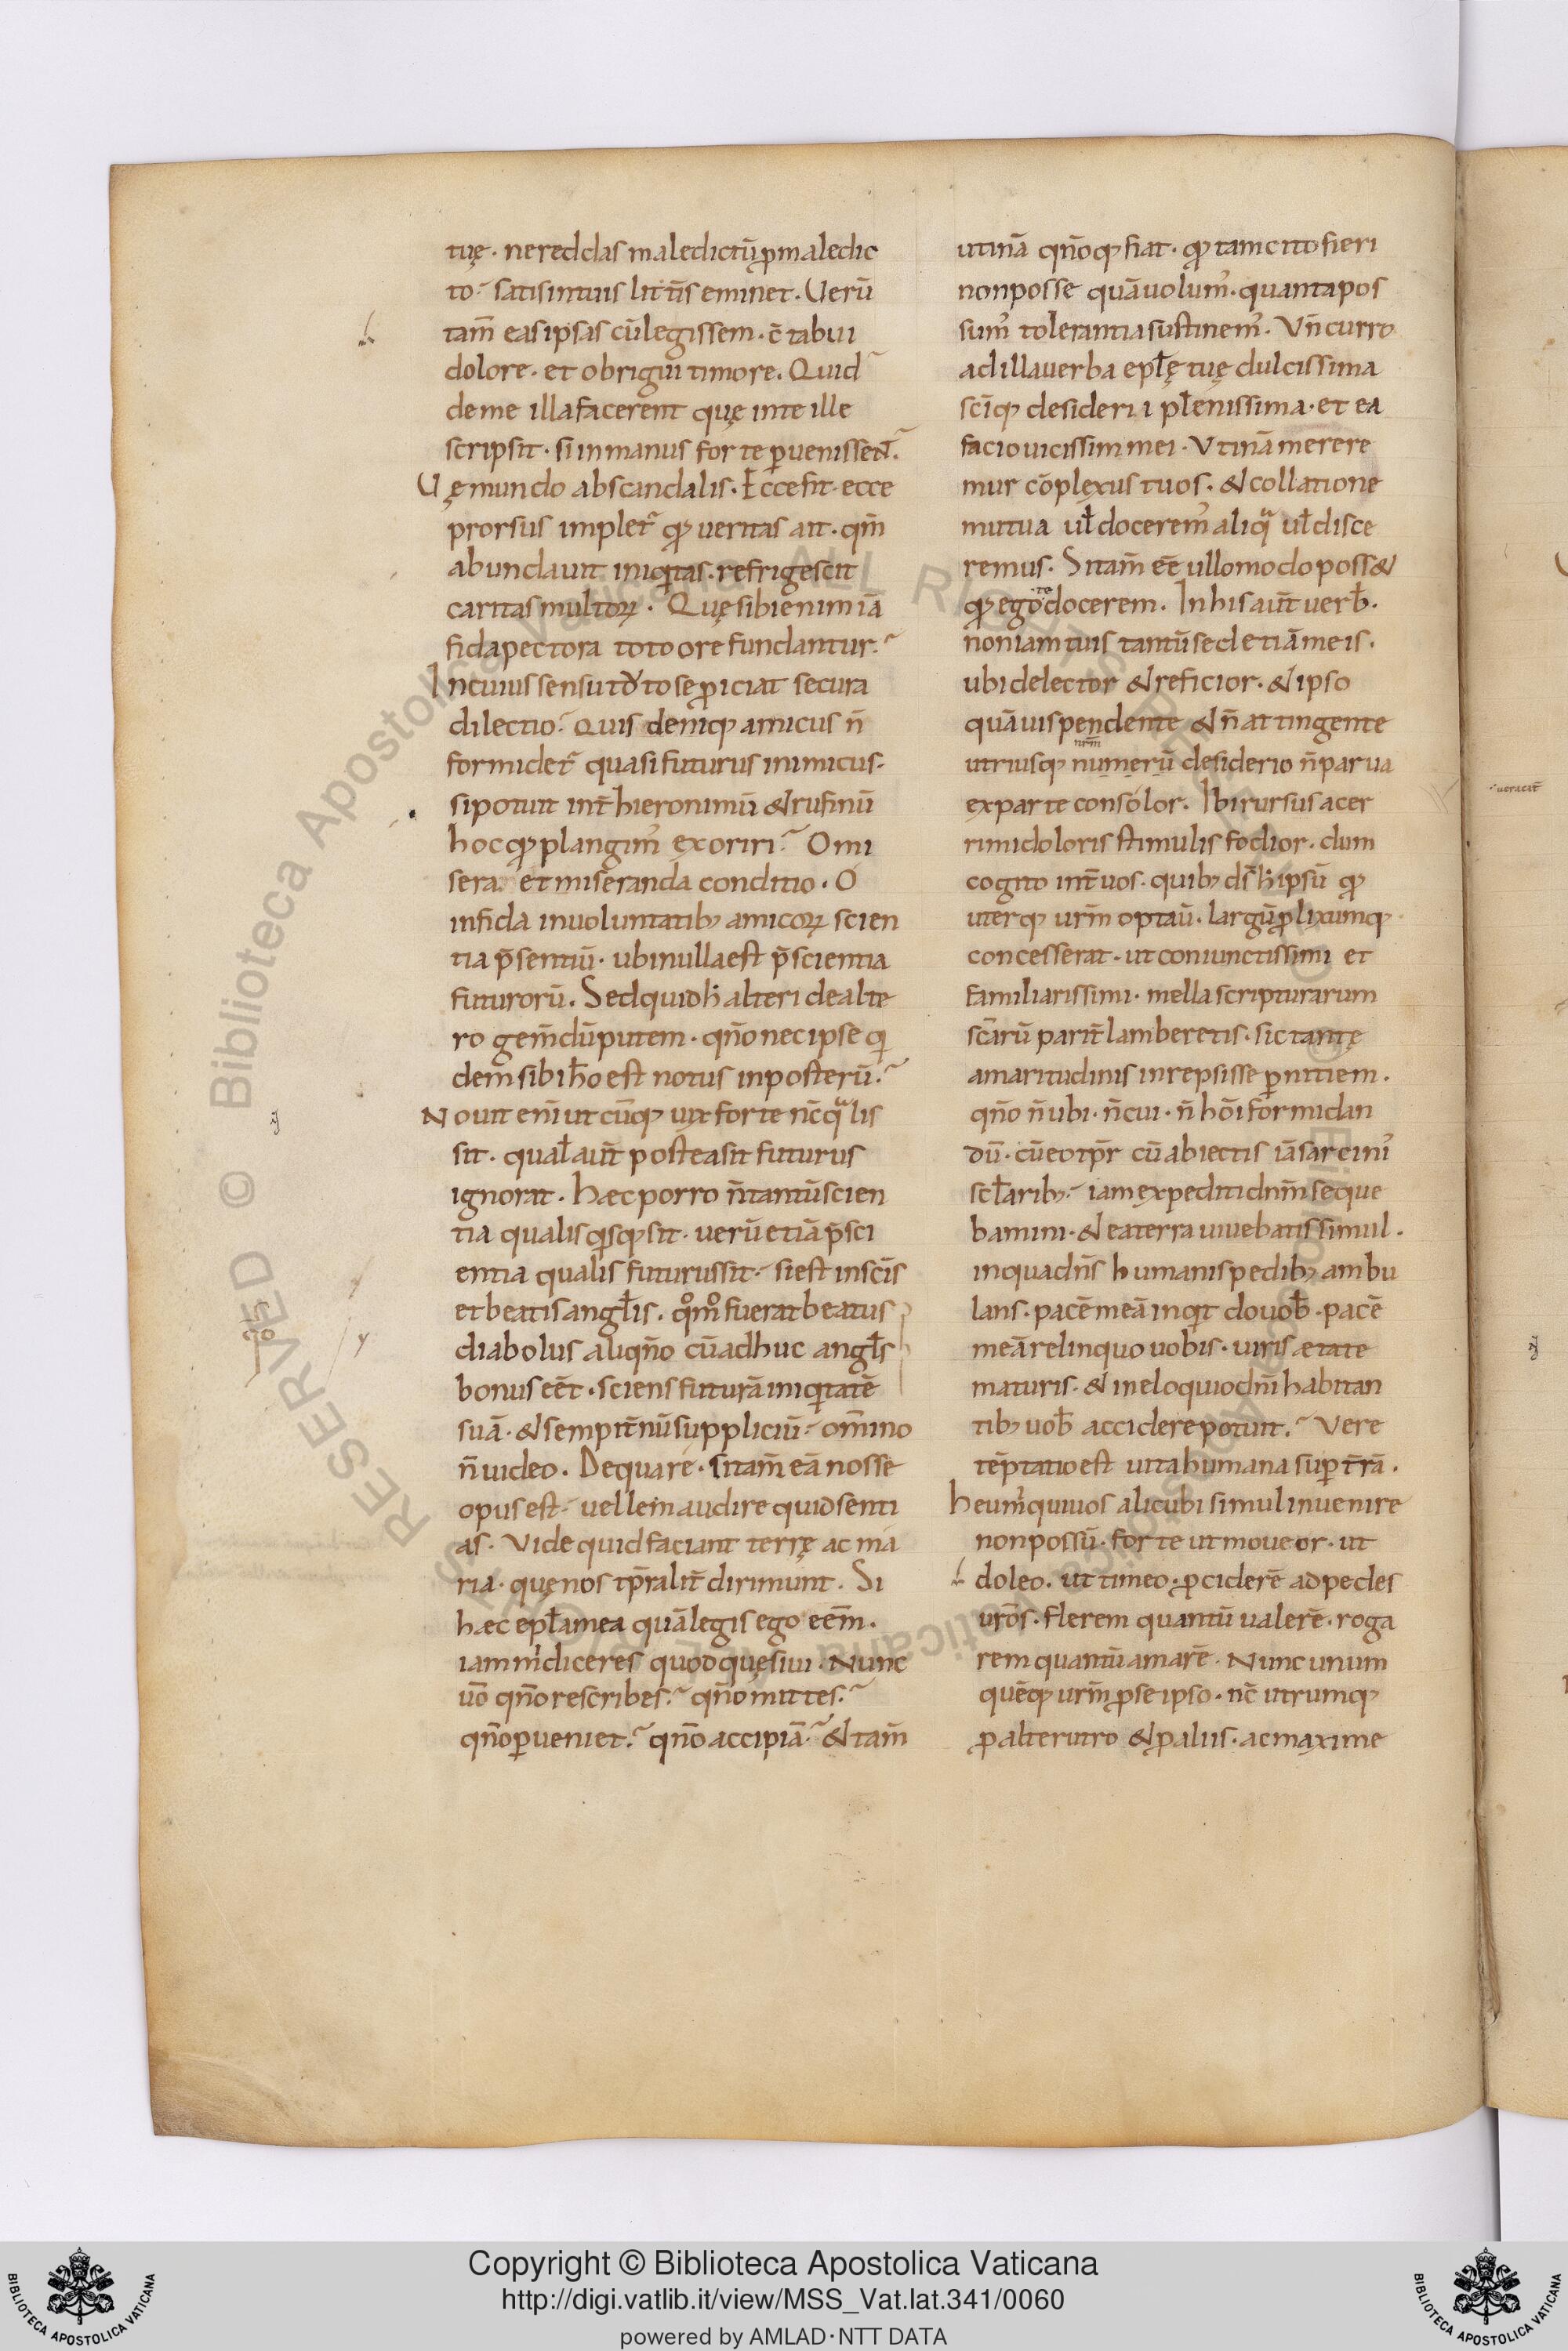 tuę· ne reddas maledictū ꝓ maledic
to· satis in tuis litt̄is eminet. Verū
tam̄ eas ipsas cū legissem· c̄tabui
dolore· et obrigui timore. Quid
de me illa facerent quę inte ille
scripsit· si in manus forte ꝑuenissent.
Vę mundo ab scandalis. Ecce fit ecce
prorsus implet᷑ qđ veritas ait· qm̄
abundauit iniqͥtas· refrigescit
caritas multoꝝ. Quę sibi enim iā
fida pectora toto ore fundantur.
In cuius sensu tōto se ꝓiciat secura
dilectio. Quis deniq; amicus n̄
formidet᷑ quasi futurus inimicus·
si potuit int̄ hieronimū & rufinū
hoc qđ plangim᷒ exoriri. O mi
sera· et miseranda conditio. O
infida in uoluntatib; amicoꝝ scien
tia p̄sentiū· ubi nulla est p̄scientia
futurorū. Sed quid ħ alteri de alte
ro gem̄dū putem· qn̄o nec ipse qͥ
dem sibi hō est notus in posterū.
Nouit eni᷑ utcūq; uix forte nc̄ qͣlis
sit· qual̄ aut̄ postea sit futurus
ignorat. Hæc porro n̄ tantū scien
tia qualis qͥsq; sit· verū etiā p̄sci
entia qualis futurus sit· si est in scīs
et beatis angl̄is· qͦmͦ fuerat beatus
diabolus aliqn̄o cū adhuc angl̄s
bonus eēt· sciens futurā iniqͥtatē
suā· & sempit̄nū suppliciū· om̄ino
n̄ uideo. De qua re· si tam̄ eā nosse
opus est· vellem audire quid senti
as. Vide quid faciant terrę ac ma
ria· quę nos tp̄ralit̄ dirimunt. Si
hæc epl̄a mea quā legis ego eēm·
iam mͥ diceres quod quęsiui. Nunc
uō qn̄o rescribes. qn̄o mittes.
qn̄o ꝑueniet. qn̄o accipiā. & tam̄
utinā qn̄oq; fiat· qđ tam cito fieri
non posse quā uolum᷒· quanta pos
sum᷒ tolerantia sustinem᷒. Vn̄ curro
ad illa uerba epl̄ę tuę dulcissima
scīq; desiderii plenissima· et ea
facio uicissim mei. Utinā merere
mur cōplexus tuos· & collatione
mutua ul̄ docerem᷒ aliqͣ ul̄ disce
remus. Si tam̄ eē ullo modo poss&
qđ ego te docerem. In his aut̄ uerb̄·
non iam tuis tantū sed etiā meis·
ubi delector & reficior· & ipso
quāuis pendente & n̄ attingente
utriusq; numerū nr̄m desiderio n̄ parua
ex parte consolor. Ibi rursus acer
rimi doloris stimulis fodior· dum
cogito int̄ uos· quib; ds̄ ħ ipsū qđ
uterq; ur̄m optaū· largū ꝓlixumq;
concesserat· ut coniunctissimi et
familiarissimi· mella scripturarum
scārū parit̄ lamberetis· sic tantę
amaritudinis inrepsisse ꝑnitiem·
qn̄o n̄ ubi· n̄ cui· n̄ hōi formidan
dū· cū eo tp̄r cū abiectis iā sarcini᷒
scl̄arib;· iam expediti dnm̄ seque
bamini· & ea terra uiuebatis simul·
in qua dn̄s humanis pedib; ambu
lans· pacē meā inqͥt do uob̄· pacē
meā relinquo uobis· uiris ætate
maturis· & in eloquio dn̄i habitan
tib; uob̄ accidere potuit. Vere
tēptatio est uita humana suꝑ t̄rā.
Heu mͥ qui uos alicubi simul inuenire
non possū· forte ut moueor· ut
doleo· ut timeo· ꝓciderē ad pedes
ur̄os· flerem quantū valerē· roga
rem quantū amarē. Nunc unum
quēq; ur̄m ꝓ se ipso· nc̄ utrumq;
ꝓ alterutro & ꝓ aliis· ac maxime
Copyright © Biblioteca Apostolica Vaticana
http://digi.vatlib.it/view/MSS_Vat.lat.341/0060
powered by AMLAD·NTT DATA